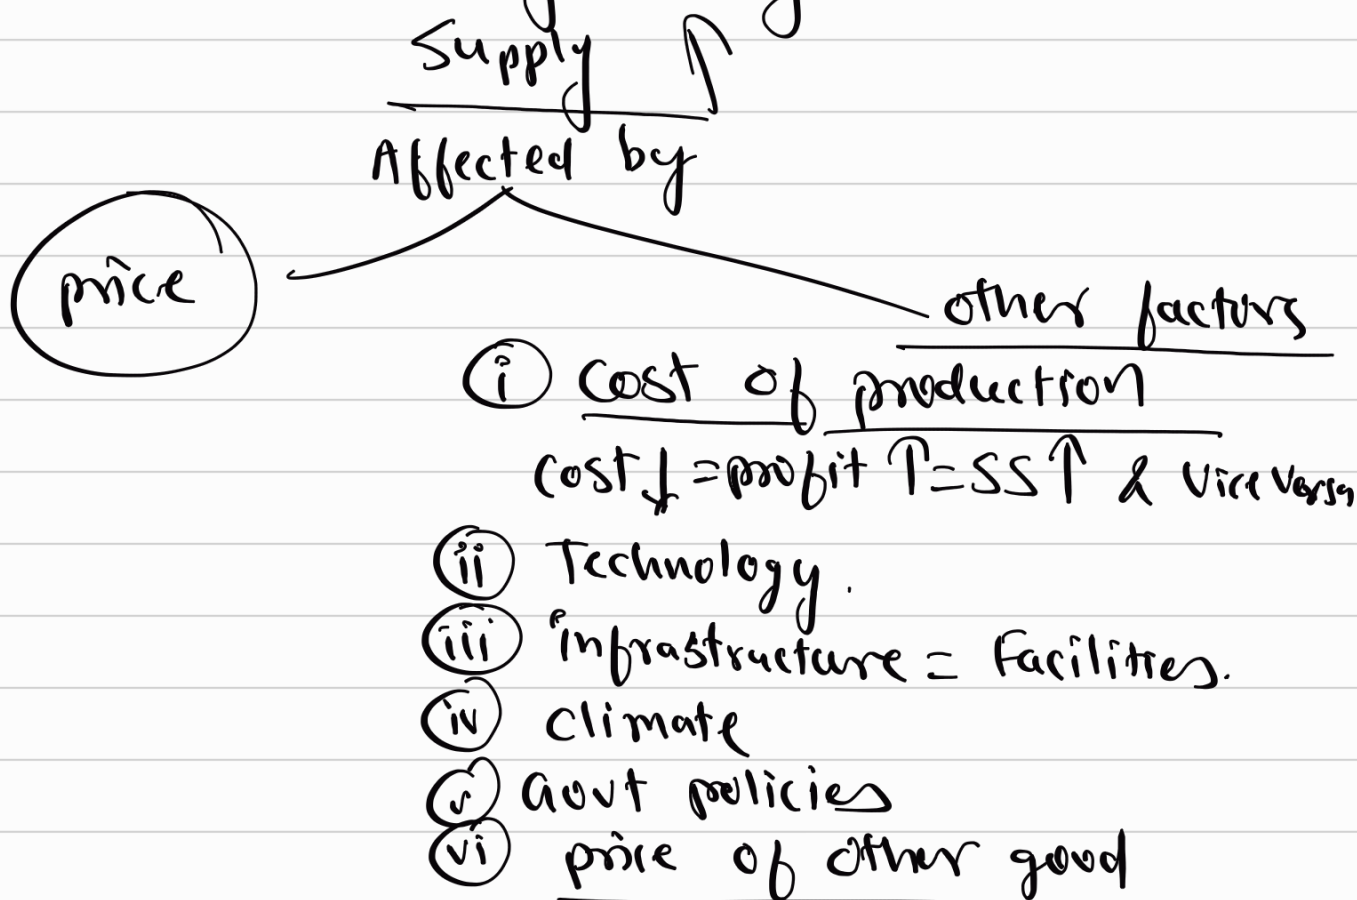 Supply ↑
Affected by
price
other factors
(i) Cost of production
Cost ↓ = profit ↑ = SS ↑ & Vice Versa
(ii) Technology.
(iii) infrastructure = Facilities.
(iv) Climate
(v) Govt policies
(vi) price of other good